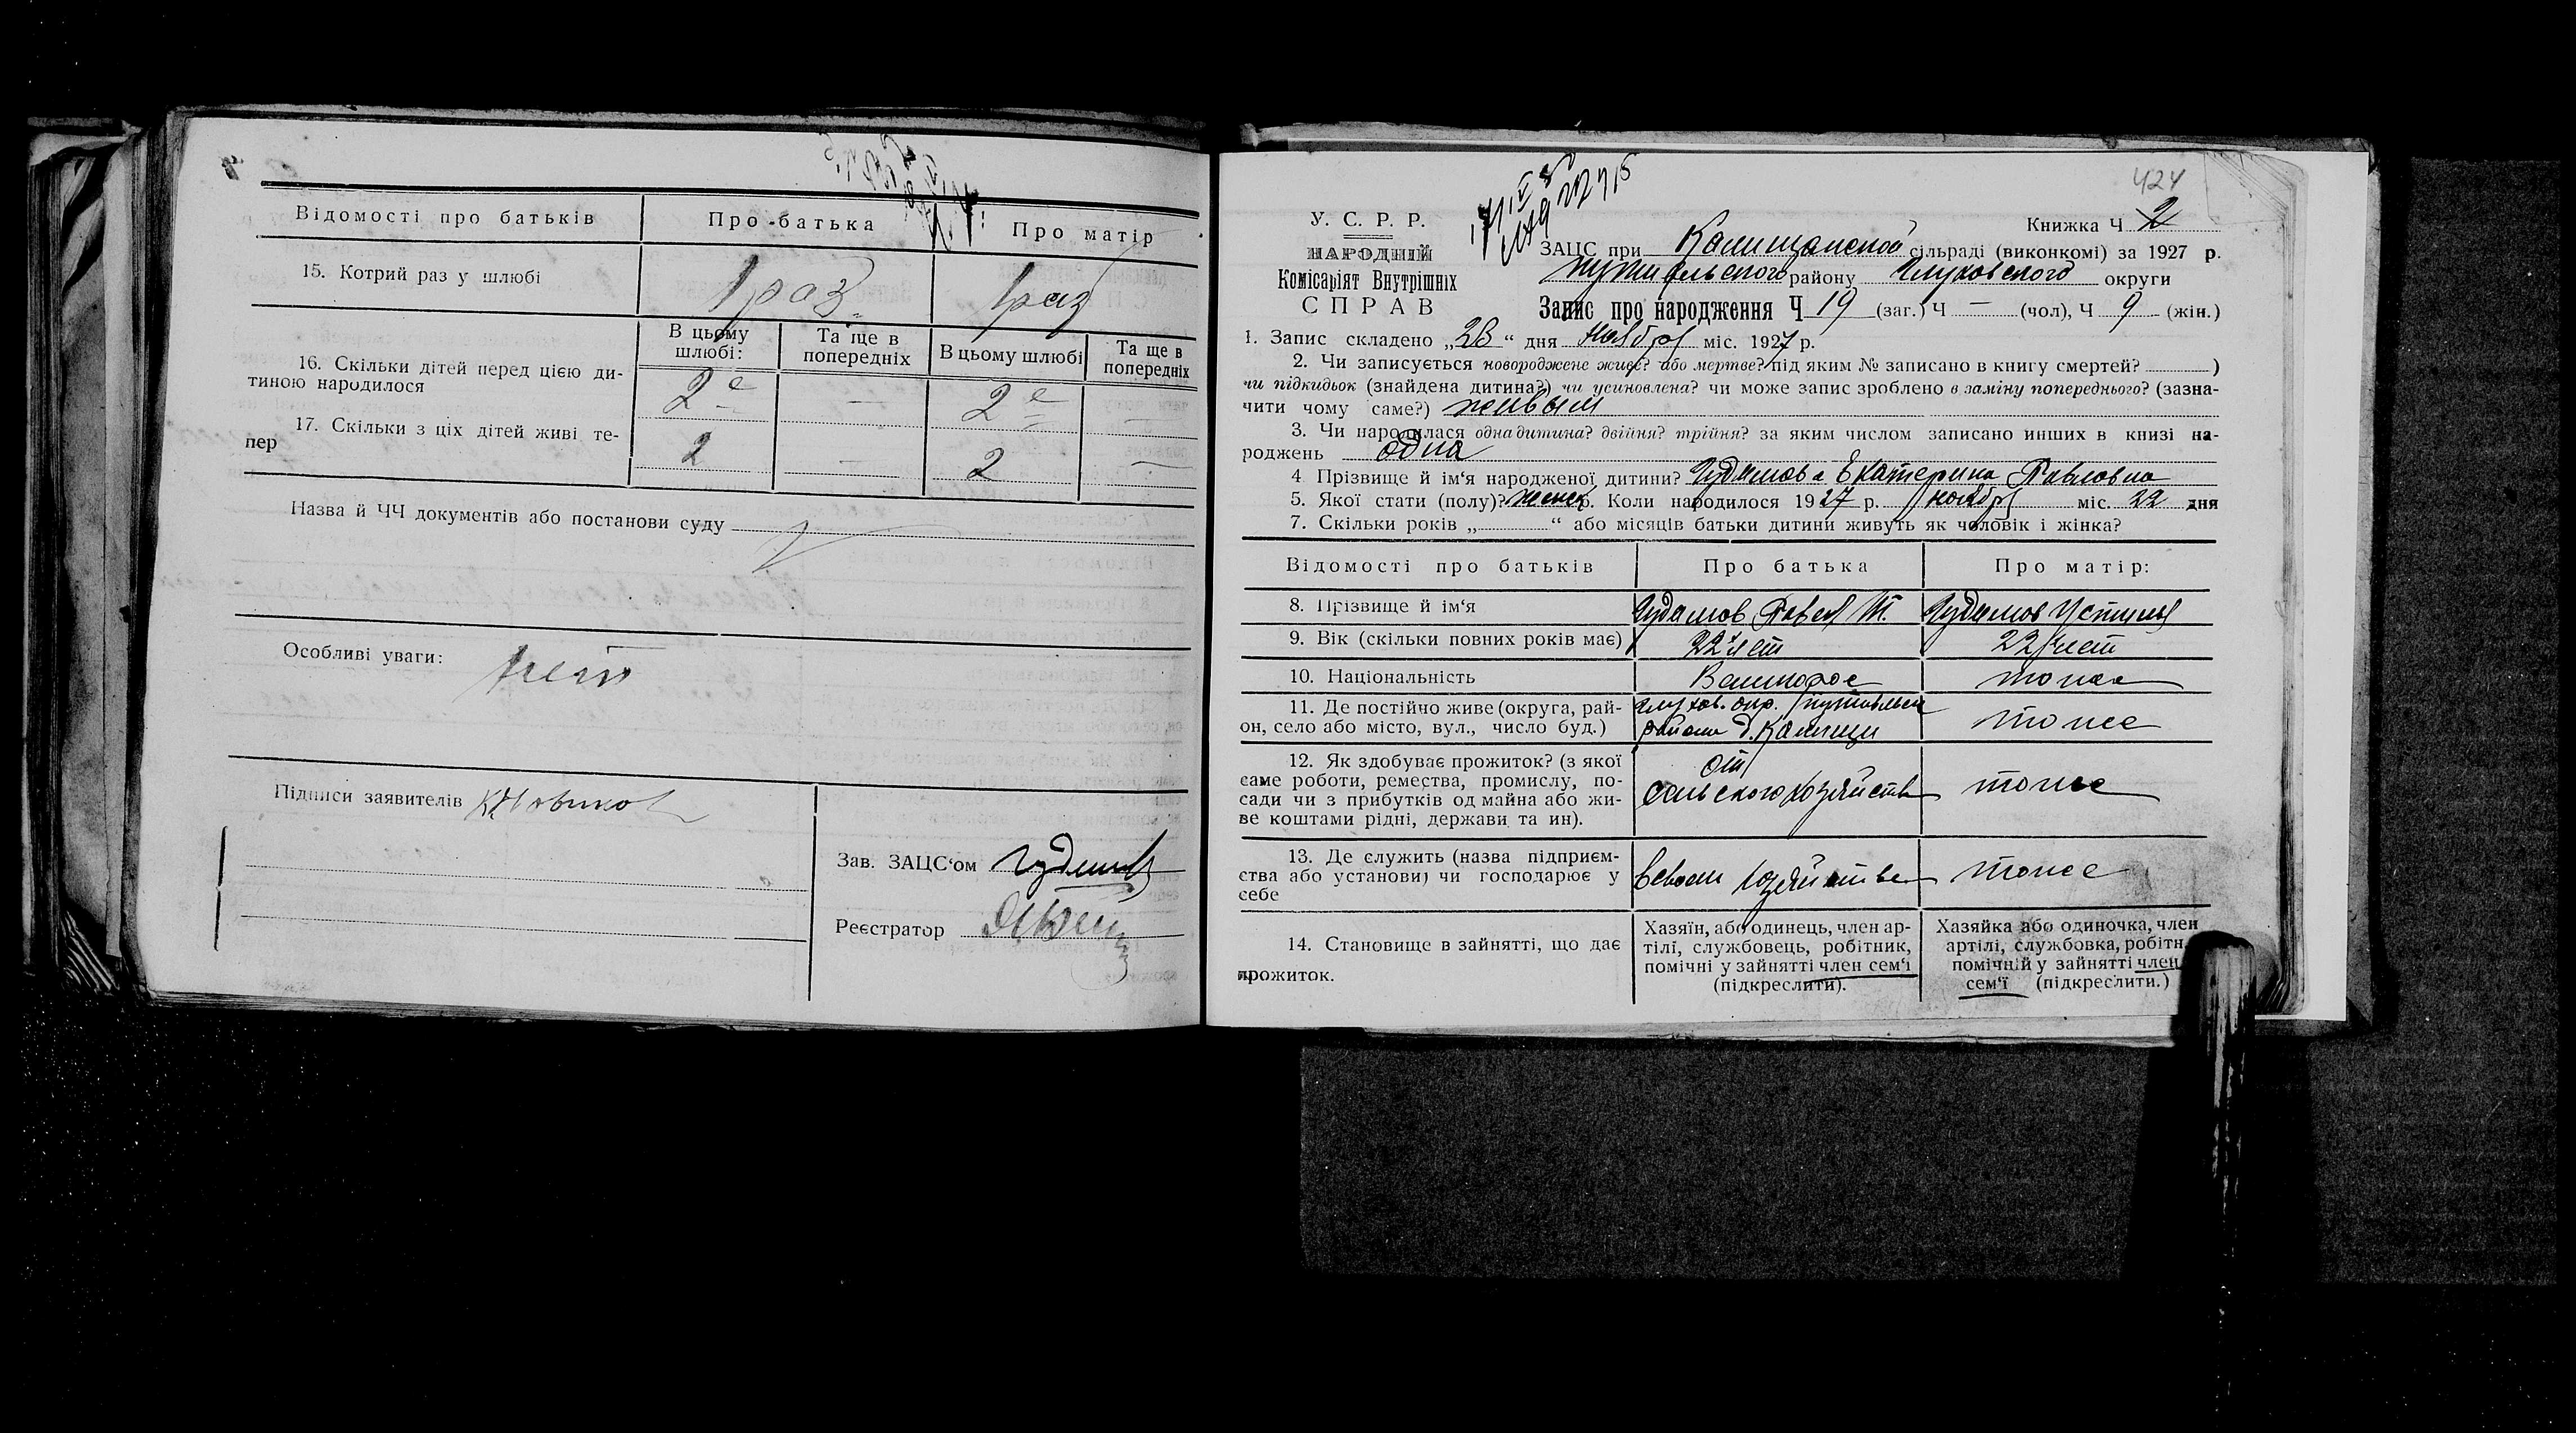 Відомості про батьків
Про батька
Про матір
15. Котрий раз у шлюбі
1 раз
1 раз
В цьому шлюбі:
Та ще в попередніх
В цьому шлюбі
Та ще в попередніх
16. Скільки дітей перед цією ди-
тиною народилося
2е
—
2е
—
17. Скільки з ціх дітей живі те-
пер
2
—
2
—
Назва й ЧЧ документів або постанови суду
Особливі уваги:
нет
Підписи заявителів К. Новиков
Зав. ЗАЦС‘ом
Реєстратор
424
У. С. Р. Р.
НАРОДНІЙ
Комісаріят Внутрішніх
СПРАВ
Книжка Ч 2
ЗАЦС при сільраді (виконкомі) за 1927 р.
Путивельского району Глуховского округи
Запис про народження Ч 19 (заг.) Ч — (чол), Ч 9 (жін.)
1. Запис складено „23“ дня ноября міс. 1927 р.
2. Чи записується новороджене живе? або мертве? під яким № записано в книгу смертей? )
чи підкидьок (знайдена дитина?) чи усиновлена? чи може запис зроблено в заміну попереднього? (зазна-
чити чому саме?) живым
3. Чи народилася одна дитина? двійня? трійня? за яким числом записано инших в книзі на-
роджень одна
4 Прізвище й ім‘я народженої дитини? Екатерина Павловна
5. Якої стати (полу)? женск 6. Коли народилося 1927 р. ноября міс. 22 дня
7. Скільки років „ “ або місяців батьки дитини живуть як чоловік і жінка?
Відомості про батьків
Про батька
Про матір:
8. Прізвище й ім‘я
Павел Т.
Устинья
9. Вік (скільки повних років має)
22 лет
22 лет
10. Національність
Великорос
тоже
11. Де постійно живе (округа, рай-
он, село або місто, вул., число буд.)
Глухов. окр. Путивльск
район д. Калищи
тоже
12. Як здобуває прожиток? (з якої
саме роботи, ремества, промислу, по-
сади чи з прибутків од майна або жи-
ве коштами рідні, держави та ин).
от
сельского хозяйства
тоже
13. Де служить (назва підприєм-
ства або установи) чи господарює у
себе
в своем хозяйстве
тоже
14. Становище в зайнятті, що дає
прожиток.
Хазяїн, або одинець, член ар-
тілі, службовець, робітник,
помічні у зайнятті член сем‘ї
(підкреслити).
Хазяйка або одиночка, член
артілі, службовка, робітн.
помічній у зайнятті член
сем‘ї (підкреслити.)